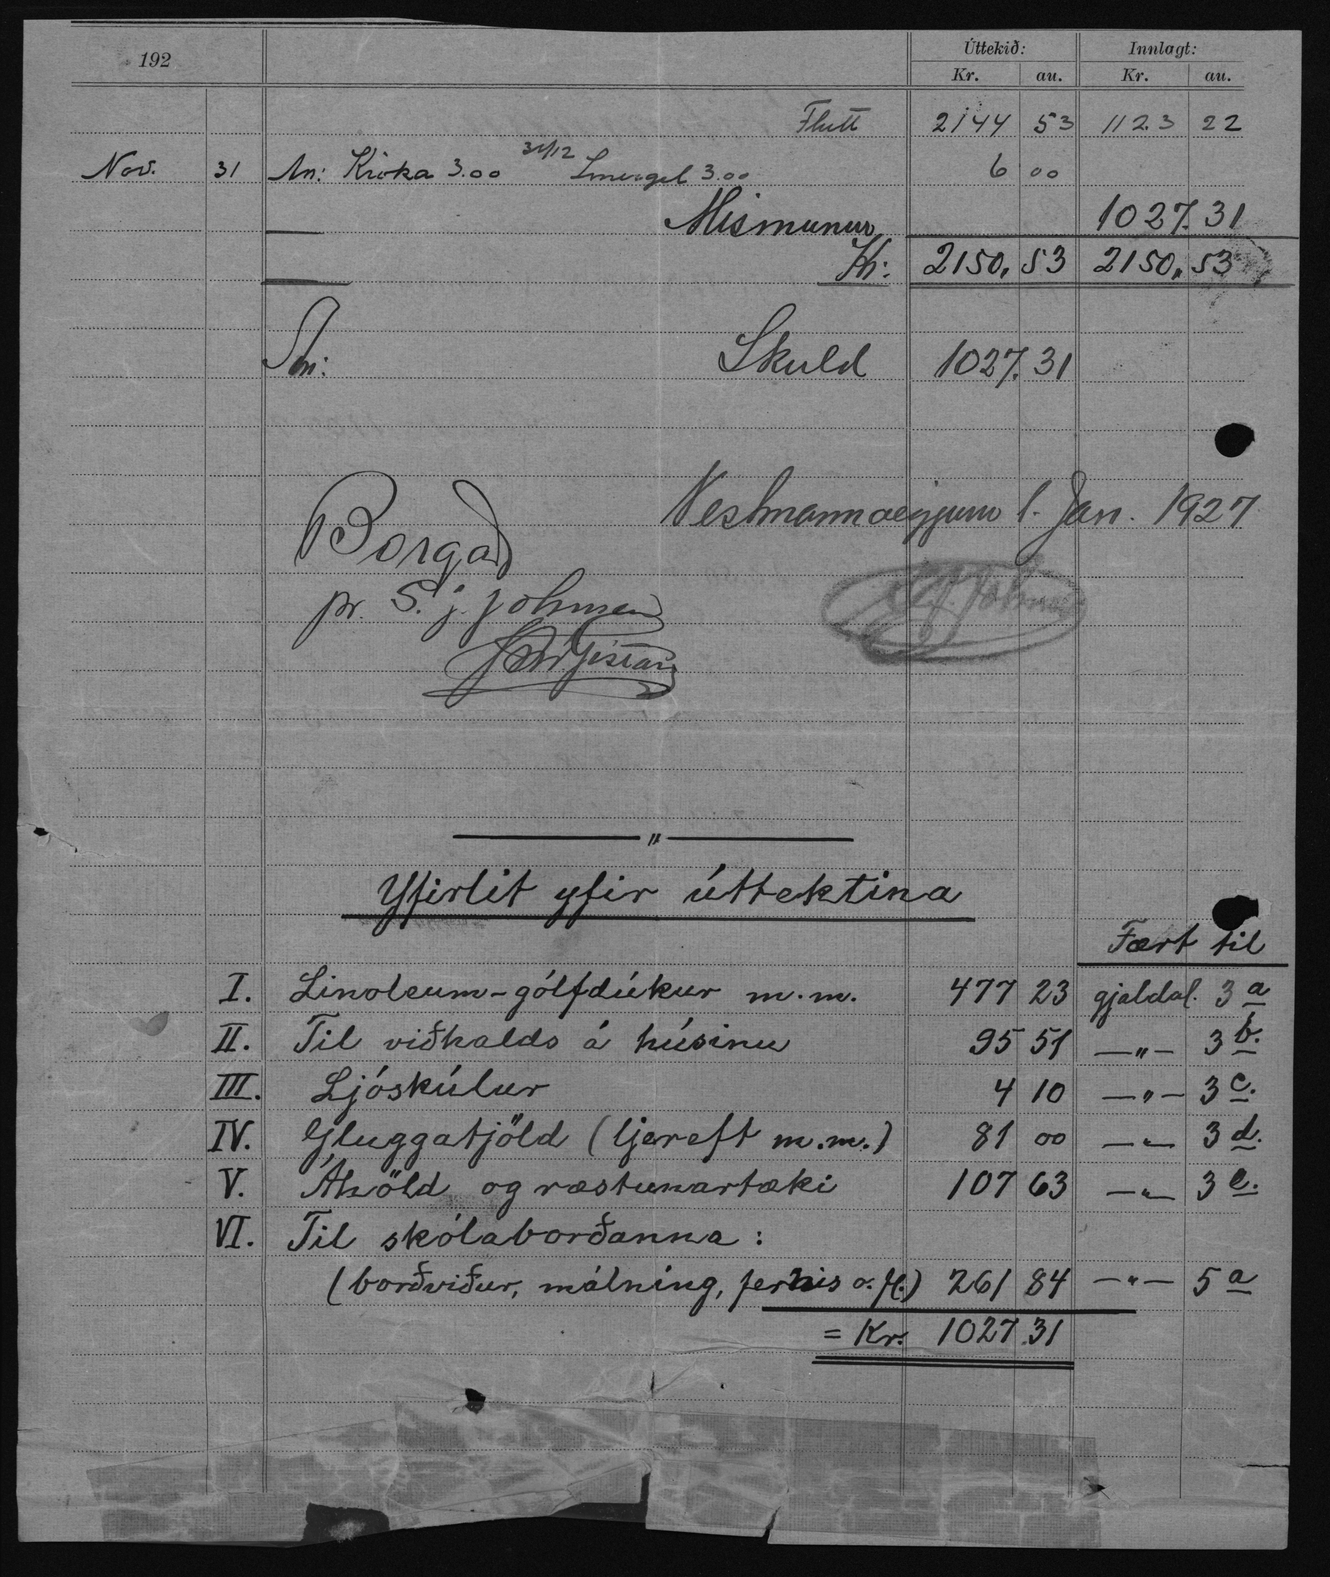 192
Úttekið: Innlagt:
Kr. au. Kr. au.
Flutt 2144 53 1123 22
Nov. 31 An: Króka 3.00 31/12 Smergel 3.00 6 00
Mismunur 1027.31
Kr: 2150,53 2150,53
An: Skuld 1027.31
Vestmannaeyjum 1. Jan. 1927
Borgað
pr. S. J. Johnsen
Yfirlit yfir úttektina
Fært til
I. Linoleum-gólfdúkur m.m. 477 23 gjaldal. 3 a
II. Til viðhalds á húsinu 95 51 —„— 3 b.
III. Ljóskúlur 4 10 —„— 3 c.
IV. Gluggatjöld (ljereft m.m.) 81 00 —„— 3 d.
V. Áhöld og ræstunartæki 107 63 —„— 3 e.
VI. Til skólaborðanna:
(borðviður, málning, fernis o.fl.) 261 84 —„— 5 a
= Kr. 1027.31